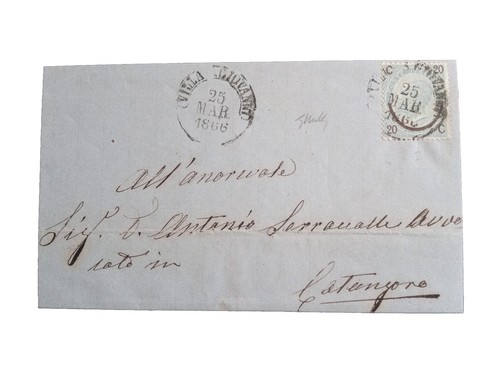 VILLA S. GIOVANNI
25
MAR
1866
VILLA S. GIOVANNI
25
MAR
1866
20
20 C
All'anorevole
Sig. D. Antonio Serravalle Avvo
cato in
Catanzaro